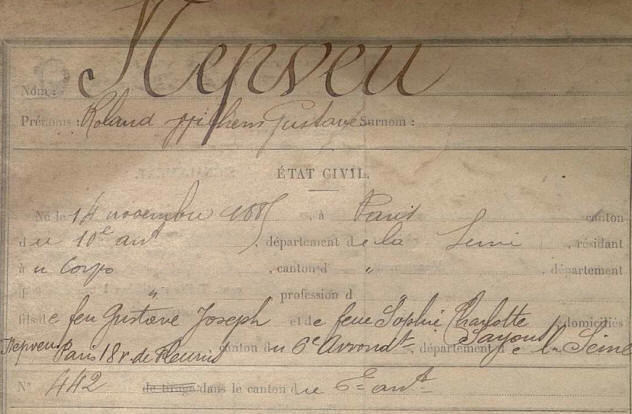 Nom : Nepveu
Prénoms : Roland Gustave Surnom :
ÉTAT CIVIL.
Né le 14 novembre à Paris canton
du 10e arrt, département de la Seine, résidant
au Corps, canton d " , département
d " profession d
fils de feu Gustave Joseph et de feue Sophie Charlotte domiciliés
Nepveu Paris 18 r. de Fleurus canton du 6e Arrondt, département de la Seine
N° 442 de tirage dans le canton du 6e arrt